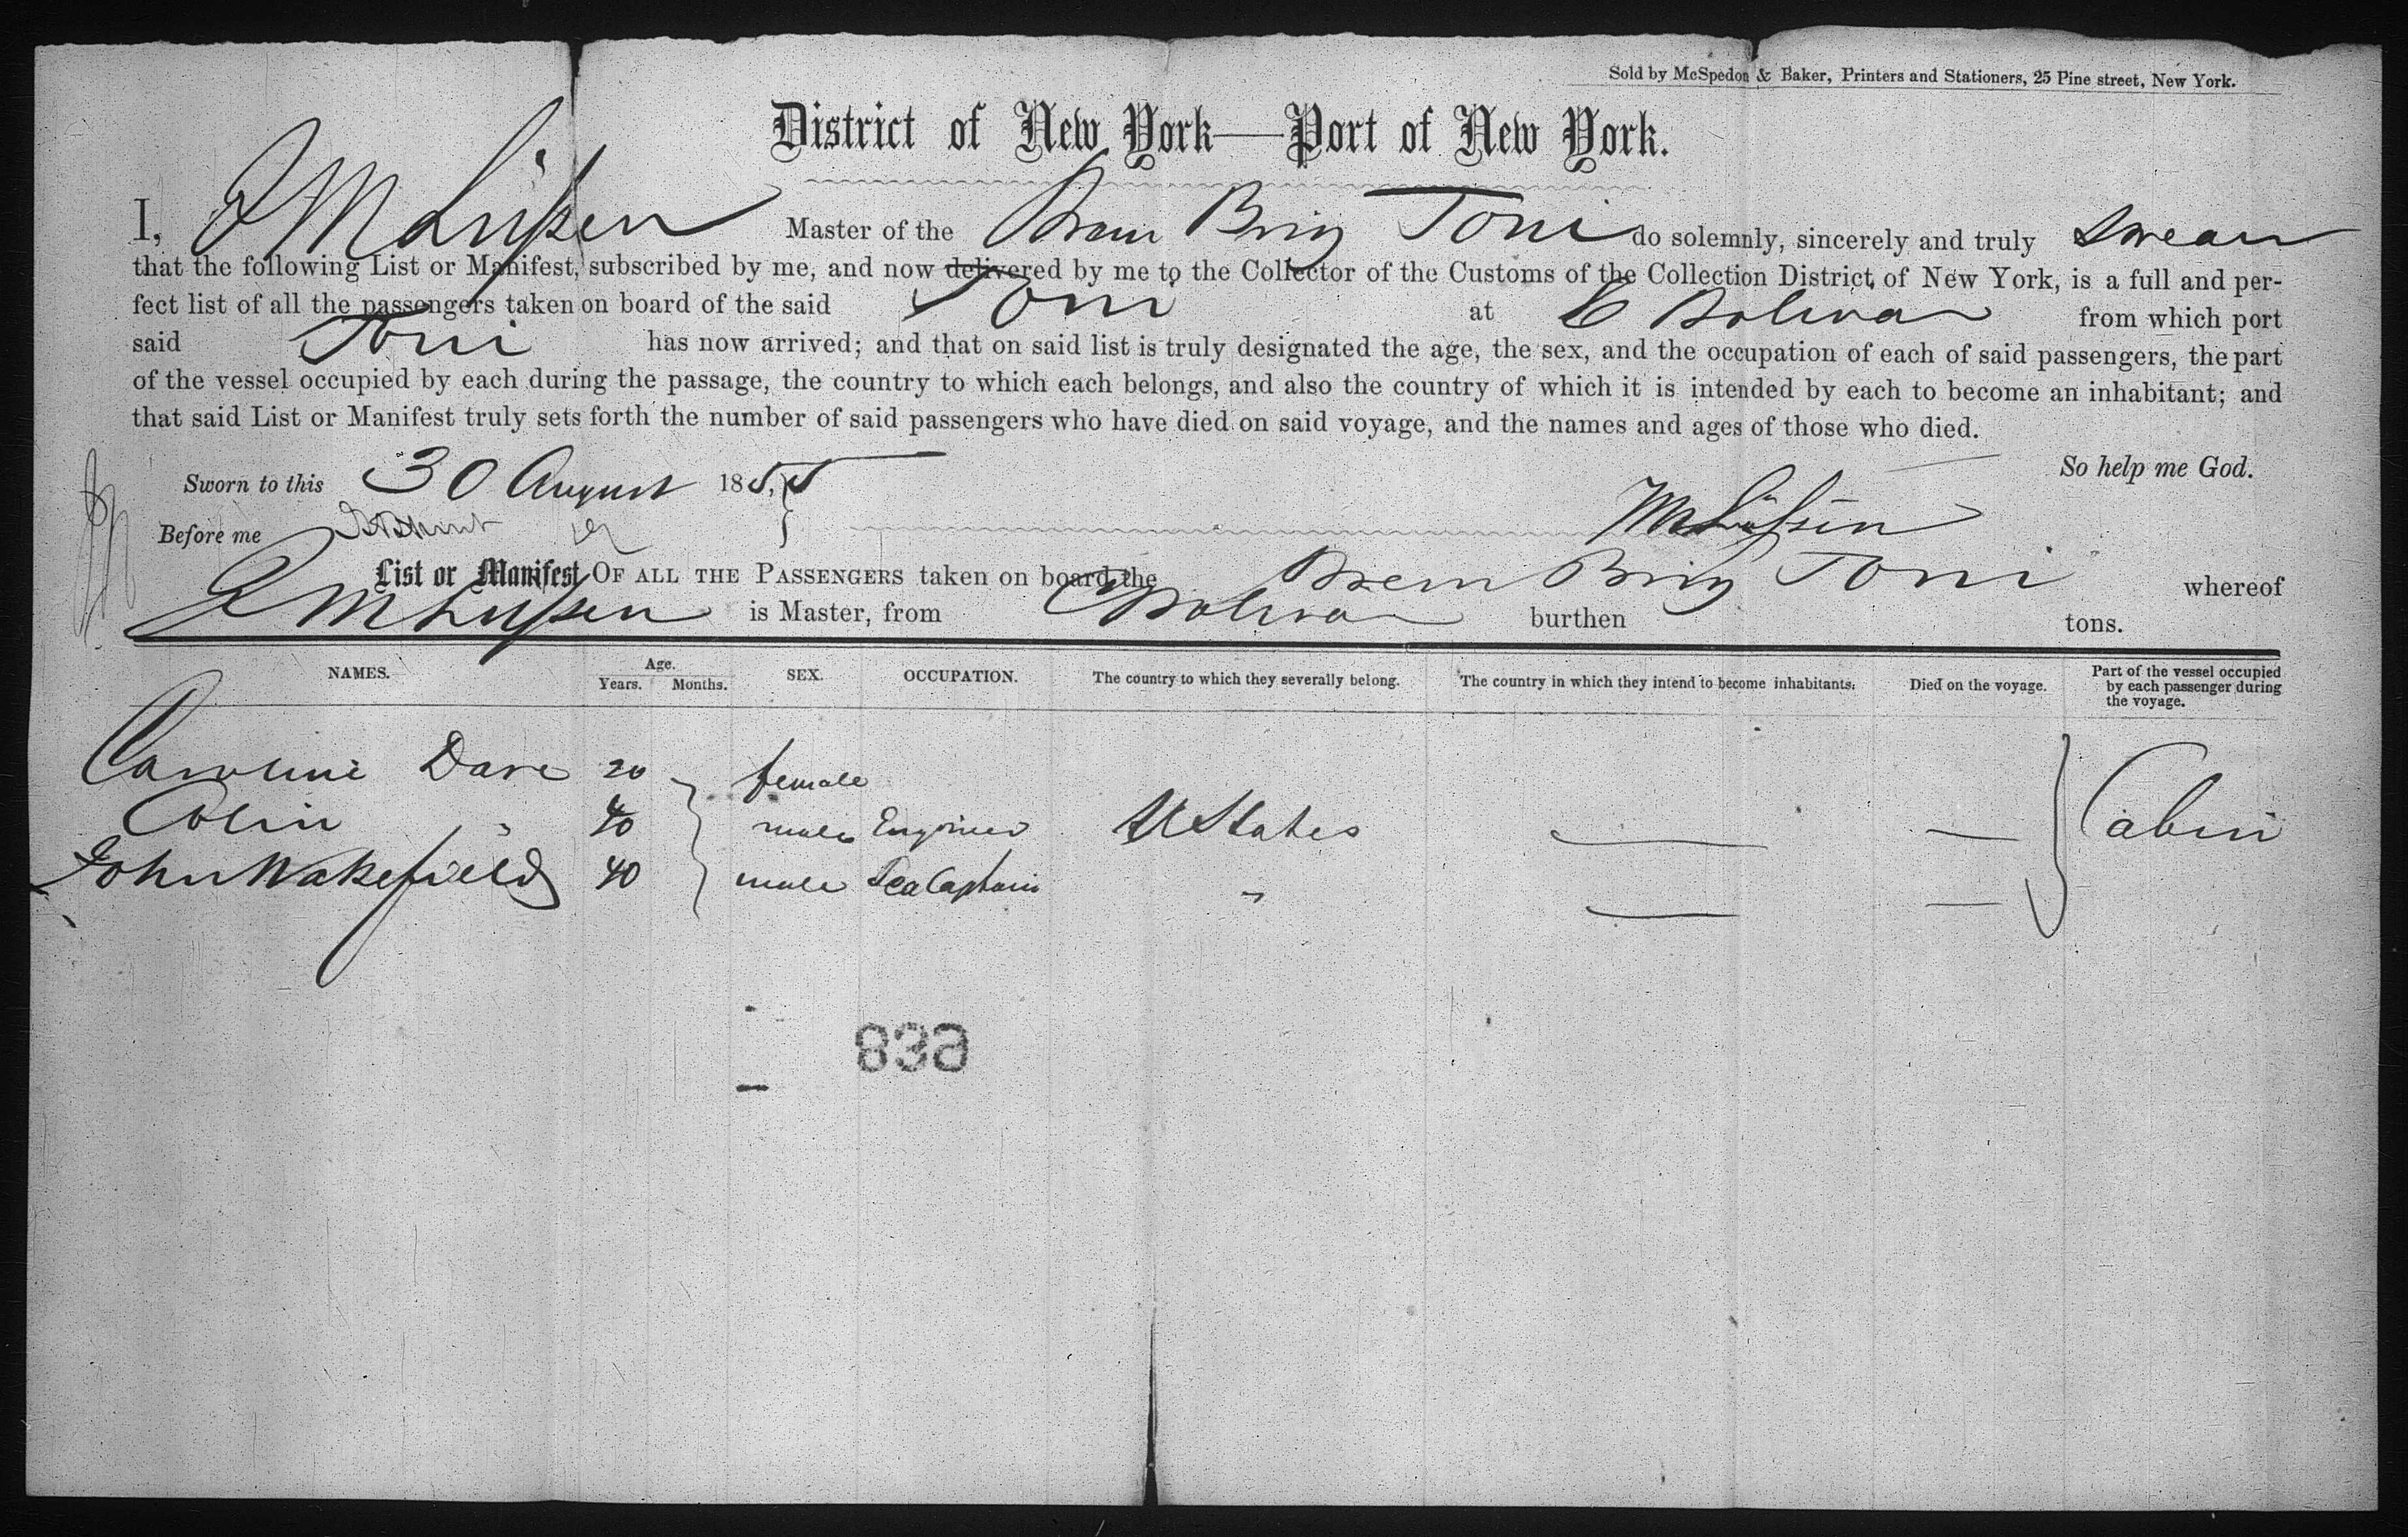 Sold by McSpedon & Baker, Printers and Stationers, 25 Pine street, New York.
District of New York—Port of New York.
I, Master of the Brem Brig Toni do solemnly, sincerely and truly swear
that the following List or Manifest, subscribed by me, and now delivered by me to the Collector of the Customs of the Collection District of New York, is a full and per-
fect list of all the passengers taken on board of the said Toni at C Bolivar from which port
said Toni has now arrived; and that on said list is truly designated the age, the sex, and the occupation of each of said passengers, the part
of the vessel occupied by each during the passage, the country to which each belongs, and also the country of which it is intended by each to become an inhabitant; and
that said List or Manifest truly sets forth the number of said passengers who have died on said voyage, and the names and ages of those who died.
So help me God.
Sworn to this 30 August 1855
Before me
List or Manifest OF ALL THE PASSENGERS taken on board the Brem Brig Toni whereof
is Master, from C Bolivar burthen tons.
NAMES. Age. Years. Months. SEX. OCCUPATION. The country to which they severally belong. The country in which they intend to become inhabitants. Died on the voyage. Part of the vessel occupied by each passenger during the voyage.
Caroline Dare 20 female
Colin " 40 male Engineer U States — — Cabin
John Wakefield 40 male Sea Captain " — —
839